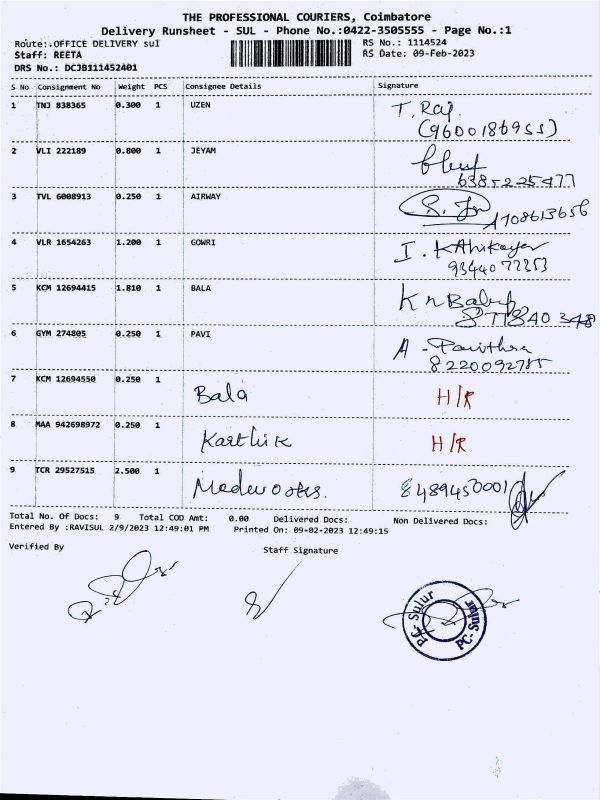 THE PROFESSIONAL COURIERS, Coimbatore
Delivery Runsheet - SUL - Phone No.:0422-3505555 - Page No.:1
Route:.OFFICE DELIVERY sul RS No.: 1114524
Staff: REETA RS Date: 09-Feb-2023
DRS No.: DCJB111452401
S No Consignment No Weight PCS Consignee Details Signature
1 TNJ 838365 0.300 1 UZEN T. Raj
(9600186955)
2 VLI 222189 0.800 1 JEYAM
6385225477
3 TVL 6008913 0.250 1 AIRWAY
4 VLR 1654263 1.200 1 GOWRI
5 KCM 12694415 1.810 1 BALA
6 GYM 274805 0.250 1 PAVI A - Pavithra
8220092785
7 KCM 12694550 0.250 1 Bala H/R
8 MAA 942698972 0.250 1 Karthik H/R
9 TCR 29527515 2.500 1 8489450001
Total No. Of Docs: 9 Total COD Amt: 0.00 Delivered Docs: Non Delivered Docs:
Entered By :RAVISUL 2/9/2023 12:49:01 PM Printed On: 09-02-2023 12:49:15
Verified By Staff Signature
PC- Sulur
PC- Sulur